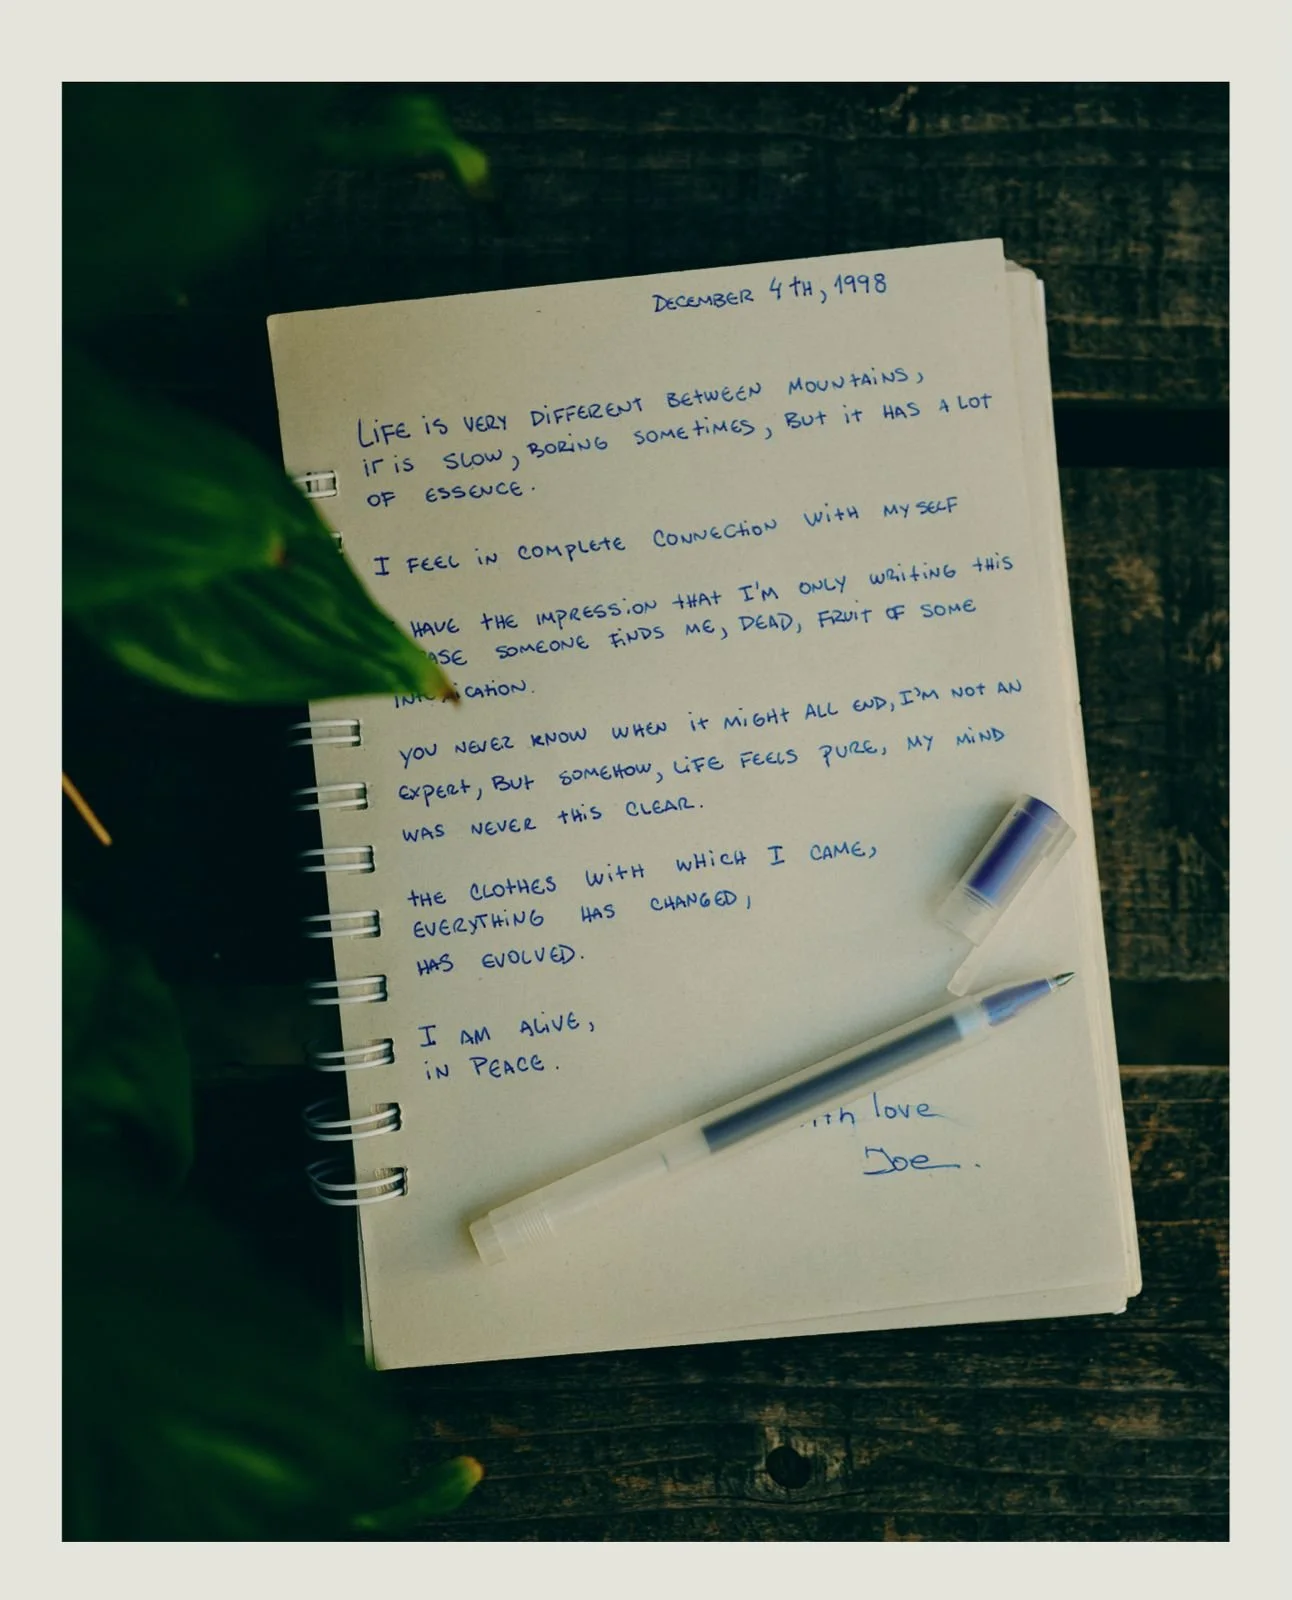 DECEMBER 4TH, 1998
LIFE IS VERY DIFFERENT BETWEEN MOUNTAINS,
IT IS SLOW, BORING SOMETIMES, BUT IT HAS A LOT
OF ESSENCE.
I FEEL IN COMPLETE CONNECTION WITH MYSELF
HAVE THE IMPRESSION THAT I'M ONLY WRITING THIS
SOMEONE FINDS ME, DEAD, FRUIT OF SOME
YOU NEVER KNOW WHEN IT MIGHT ALL END, I'M NOT AN
EXPERT, BUT SOMEHOW, LIFE FEELS PURE, MY MIND
WAS NEVER THIS CLEAR.
THE CLOTHES WITH WHICH I CAME,
EVERYTHING HAS CHANGED,
HAS EVOLVED.
I AM ALIVE,
IN PEACE.
love
Joe.